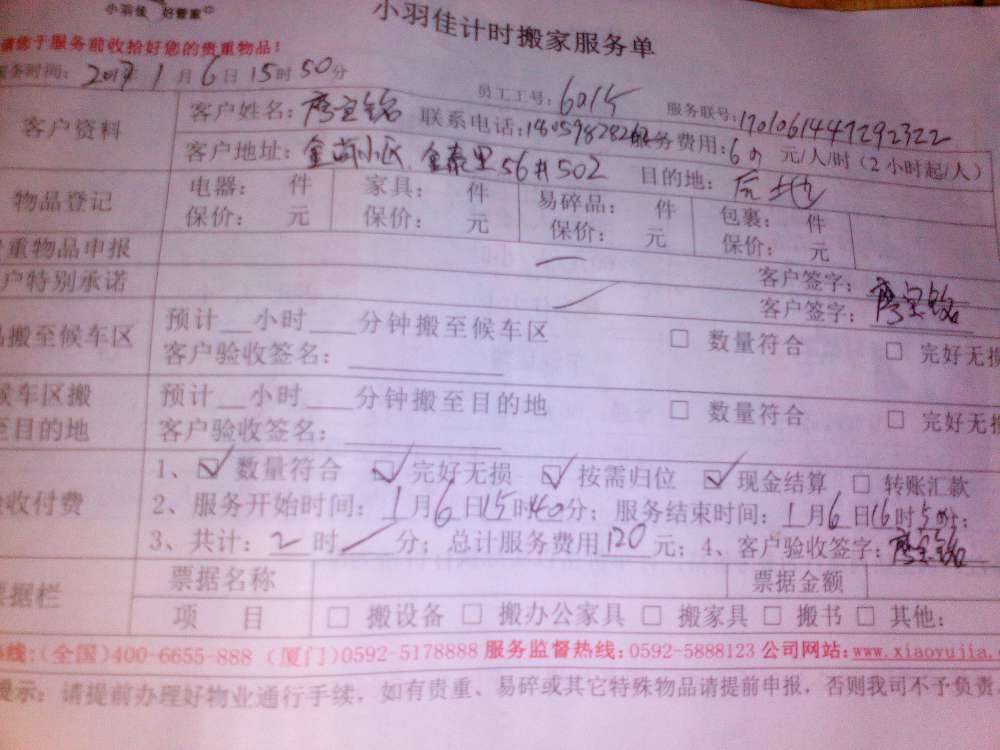 小羽佳 好管家
小羽佳计时搬家服务单
请您于服务前收拾好您的贵重物品!
服务时间: 2017年1月6日15时50分
员工工号: 6015 服务联号: 1701061447292322
客户资料 客户姓名: 联系电话: 服务费用: 60元/人/时(2小时起/人)
客户地址: 金尚小区 金泰里56#502 目的地:
物品登记 电器: 件 家具: 件 易碎品: 件 包裹: 件
保价: 元 保价: 元 保价: 元 保价: 元
重物品申报 客户签字:
户特别承诺 客户签字:
品搬至候车区 预计__小时___分钟搬至候车区 □ 数量符合 □ 完好无损
客户验收签名:
候车区搬 预计__小时___分钟搬至目的地 □ 数量符合 □ 完好无损
至目的地 客户验收签名:
验收付费 1、☑ 数量符合 ☑ 完好无损 ☑ 按需归位 ☑ 现金结算 □ 转账汇款
2、服务开始时间: 1月6日15时40分; 服务结束时间: 1月6日16时50分;
3、共计: 2时/分; 总计服务费用120元; 4、客户验收签字:
票据栏 票据名称 票据金额
项 目 □ 搬设备 □ 搬办公家具 □ 搬家具 □ 搬书 □ 其他:
线:(全国)400-6655-888 (厦门)0592-5178888 服务监督热线: 0592-5888123 公司网站: www.xiaoyujia.
提示: 请提前办理好物业通行手续, 如有贵重、易碎或其它特殊物品请提前申报, 否则我司不予负责